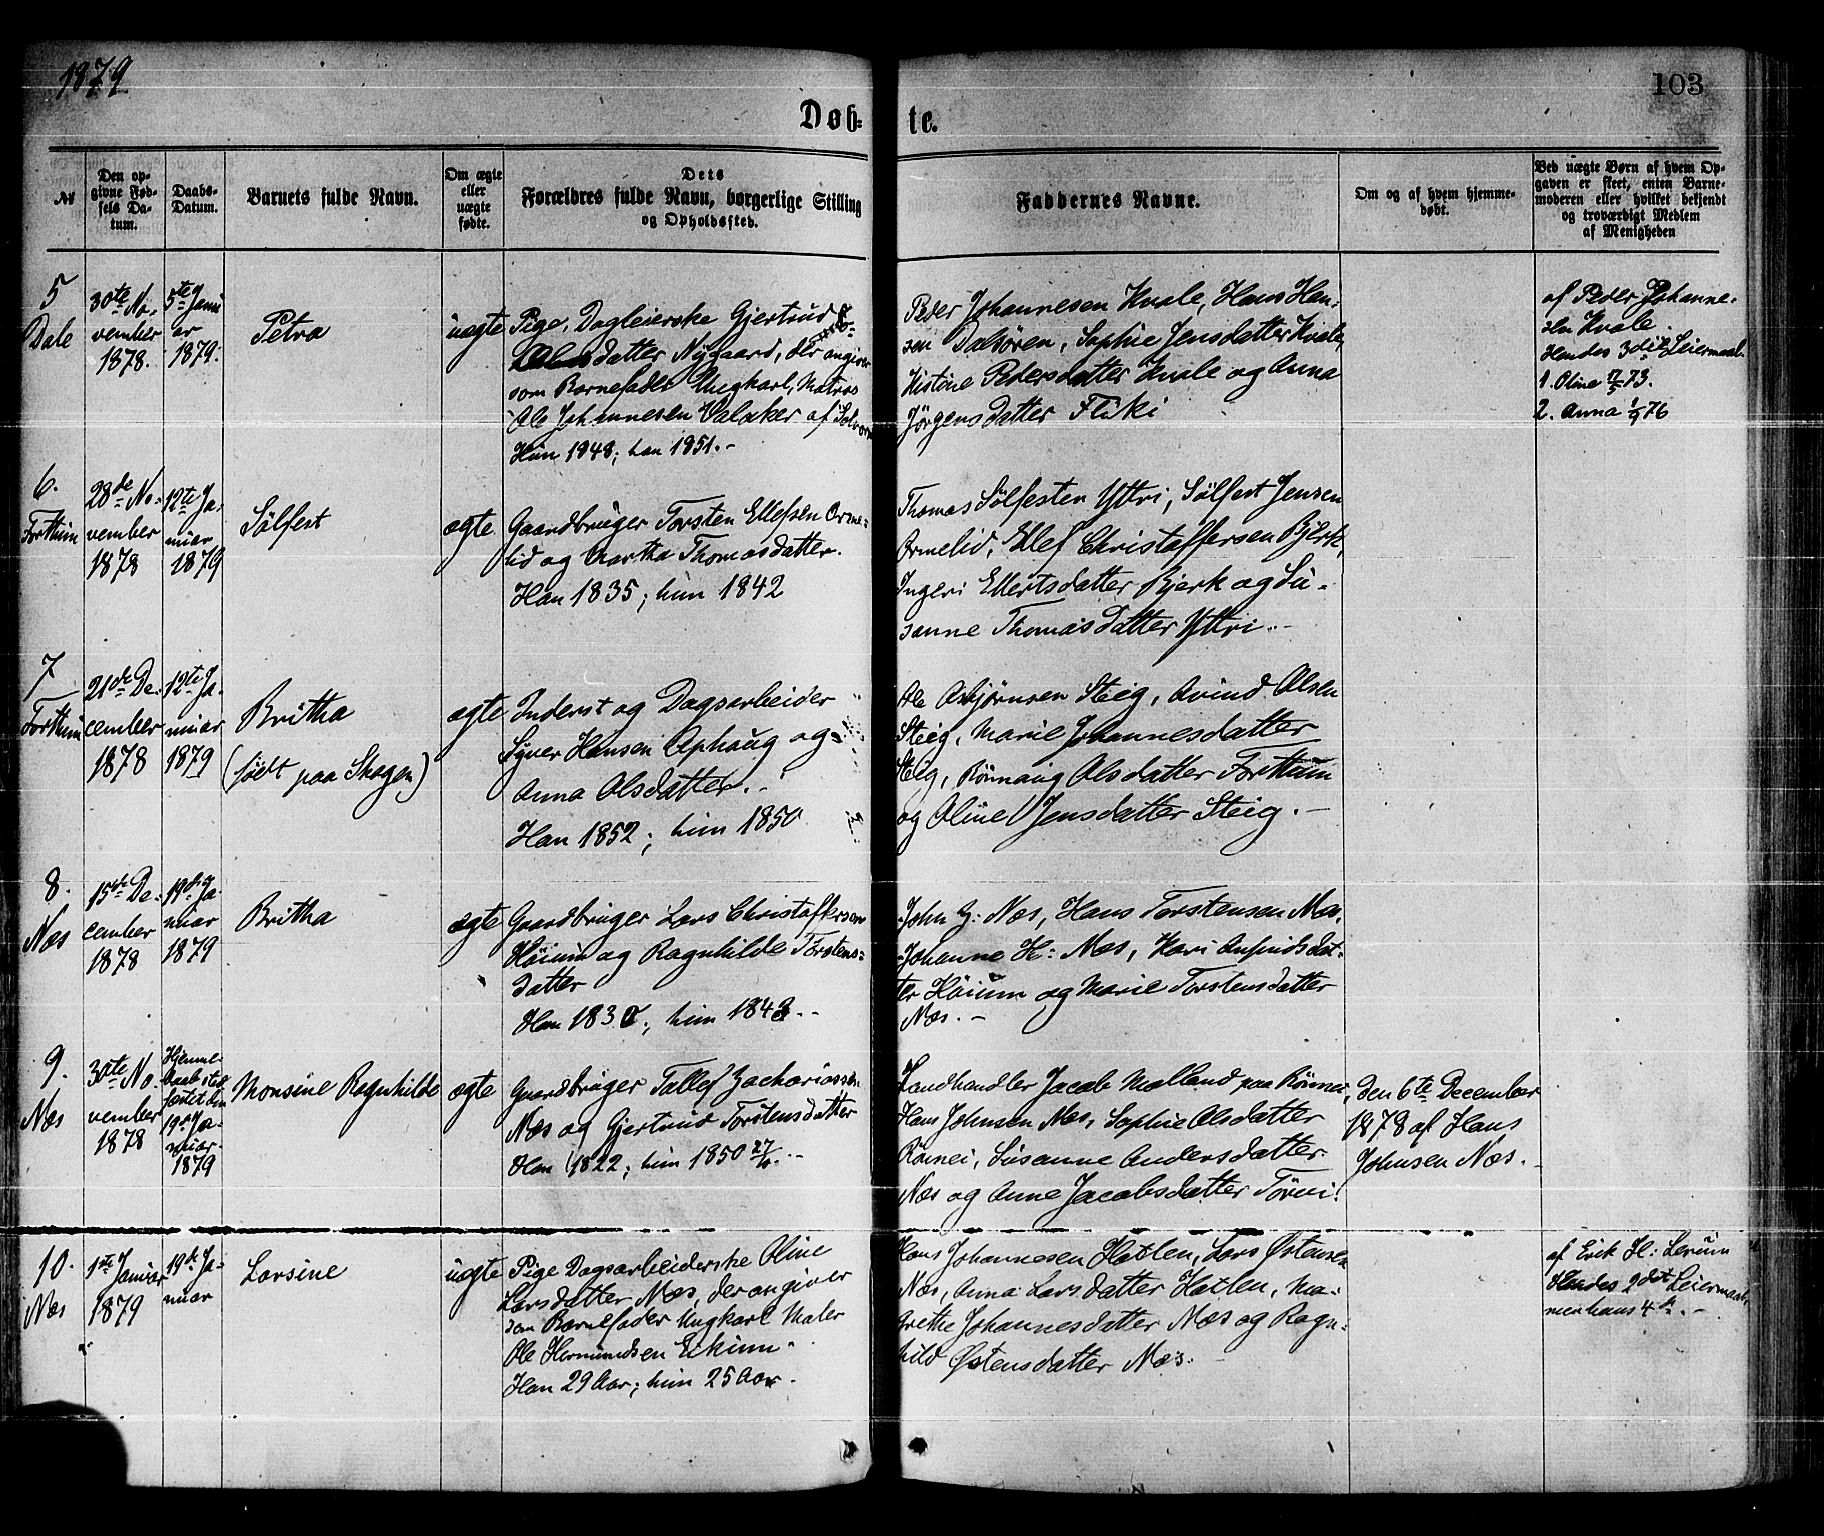 1879.
103
Døb-
te.
№
Den op-
givne Fød-
sels Da-
tum.
Daabs-
Datum.
Barnets fulde Navn.
Om ægte
eller
uægte
fødte.
Dets
Forældres fulde Navn, borgerlige Stilling
og Opholdssted.
Faddernes Navne.
Om og af hvem hjemme-
døbt.
Ved uægte Børn af hvem Op-
gaven er skeet, enten Barne-
moderen eller hvilket bekjendt
og troværdigt Medlem
af Menigheden
5
Dale
30te No-
vember
1878.
5te Janu
ar
1879.
Petra
uægte
Pige, Dagleierske Gjertrud
datter Nygaard, der angiver
som Barnefader Ungkarl, Matros
Ole Johannesen Valaker af Solvorn
Hun 1848; han 1851.-
Peder Johannesen Kvale, Hans Han-
sen Dalsøren, Sophie Jensdatter Kvale,
Kistine Pedersdatter Kvale og Anna
Jörgensdatter Fliki
af Peder Johanne-
sen Kvale.
Hendes 3die Leiermaal.
1. Oline 73.
2. Anna 76
6.
Forthun
28de No-
vember
1878
12te Ja-
nuar
1879
Sølfest
ægte
Gaardbruger Torsten Ellefsen Orme-
lid og Martha Thomasdatter.
Han 1835; hun 1842
Thomas Sølfesten Yttri, Sølfest Jensen
Ormelid, Ellef Christoffersen Bjerk,
Ingeri Ellertsdatter Bjerk og Su-
sanne Thomasdatter Yttri.-
7
Forthun
21de De-
cember
1878
12te Ja-
nuar
1879
Britha
(født paa Skagen)
ægte
Inderst og Dagsarbeider
Syver Hansen Ophaug og
Anna Olsdatter.-
Han 1852; hun 1850
Ole Asbjørnsen Steig, Avind Olsen
Steig, Marie Johannesdatter
Steig, Rönnaug Olsdatter Forthun
og Oline Jensdatter Steig.-
8.
Næs
15de De-
cember
1878
19de Ja-
nuar
1879
Britha
ægte
Gaardbruger Lars Christoffersen
Höium og Ragnhilde Torstens-
datter
Han 1830; hun 1843.-
John G: Næs, Hans Torstensen Næs,
Johanne H: Næs, Kari Anfindsdat-
ter Höium og Marie Torstensdatter
Næs.-
9.
Næs
30te No-
vember
1878
Hjemme-
daab stad-
fæstet den
19de Ja-
nuar
1879
Monsine Ragnhilde
ægte
Gaardbruger Tallef Zachariassen
Næs og Gjertrud Torstensdatter
Han 1822; hun 1850 27/10.-
Landhandler Jacob Molland paa Rönnei,
Hans Johnsen Næs, Sophie Olsdatter
Rönnei, Susanne Andersdatter
Næs og Anne Jacobsdatter Törvi.
Den 6te December
1878 af Hans
Johnsen Næs.-
10.
Næs
1ste Januar
1879
19de Ja-
nuar
Larsine
uægte
Pige Dagsarbeiderske Oline
Larsdatter Næs, der angiver
som Barnefader Ungkarl Maler
Ole Hermundsen Eikum.
Han 29 Aar; hun 25 Aar.
Hans Johannesen Hatlen, Lars Østensen
Næs, Anna Larsdatter Hatlen, Ma-
grethe Johannesdatter Næs og Ragn-
hild Østensdatter Næs.-
af Erik H: Lerum
Hendes 2det Leiermaal.
men hans 4de.-